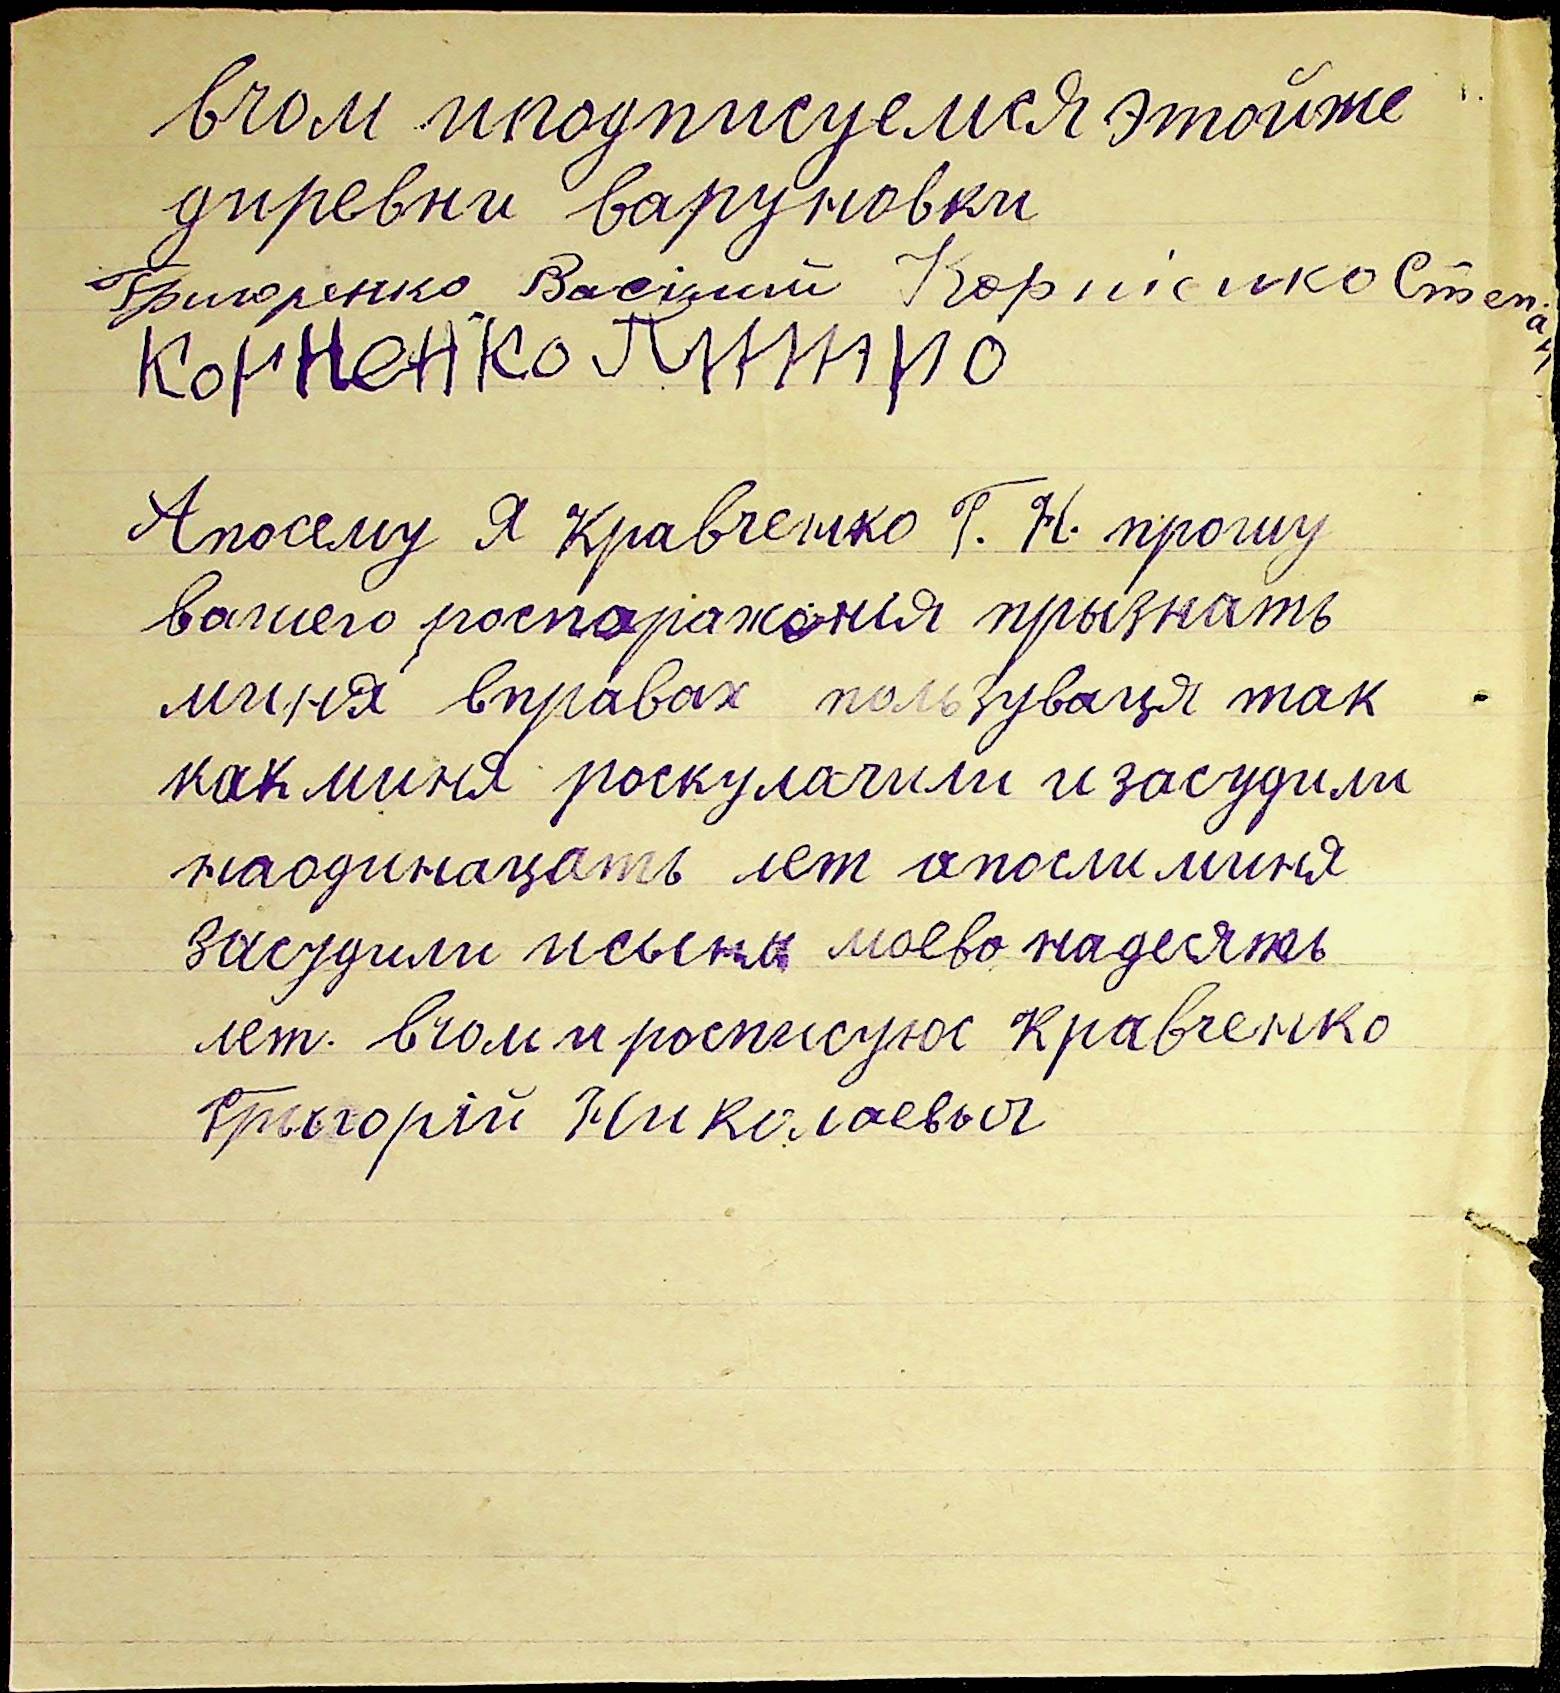 вчом иподписуемся этойже
диревни варуновки
Григоренко Васілий Корніенко Степан
Корненко
Апосему Я Кравченко Г. Н. прошу
вашего роспаражения прызнать
миня вправах пользуваця так
как миня роскулачили и засудили
наодинацать лет апосли миня
засудили исына моево надесять
лет. вчом и росписуюс Кравченко
Грыгорій Николаевыч